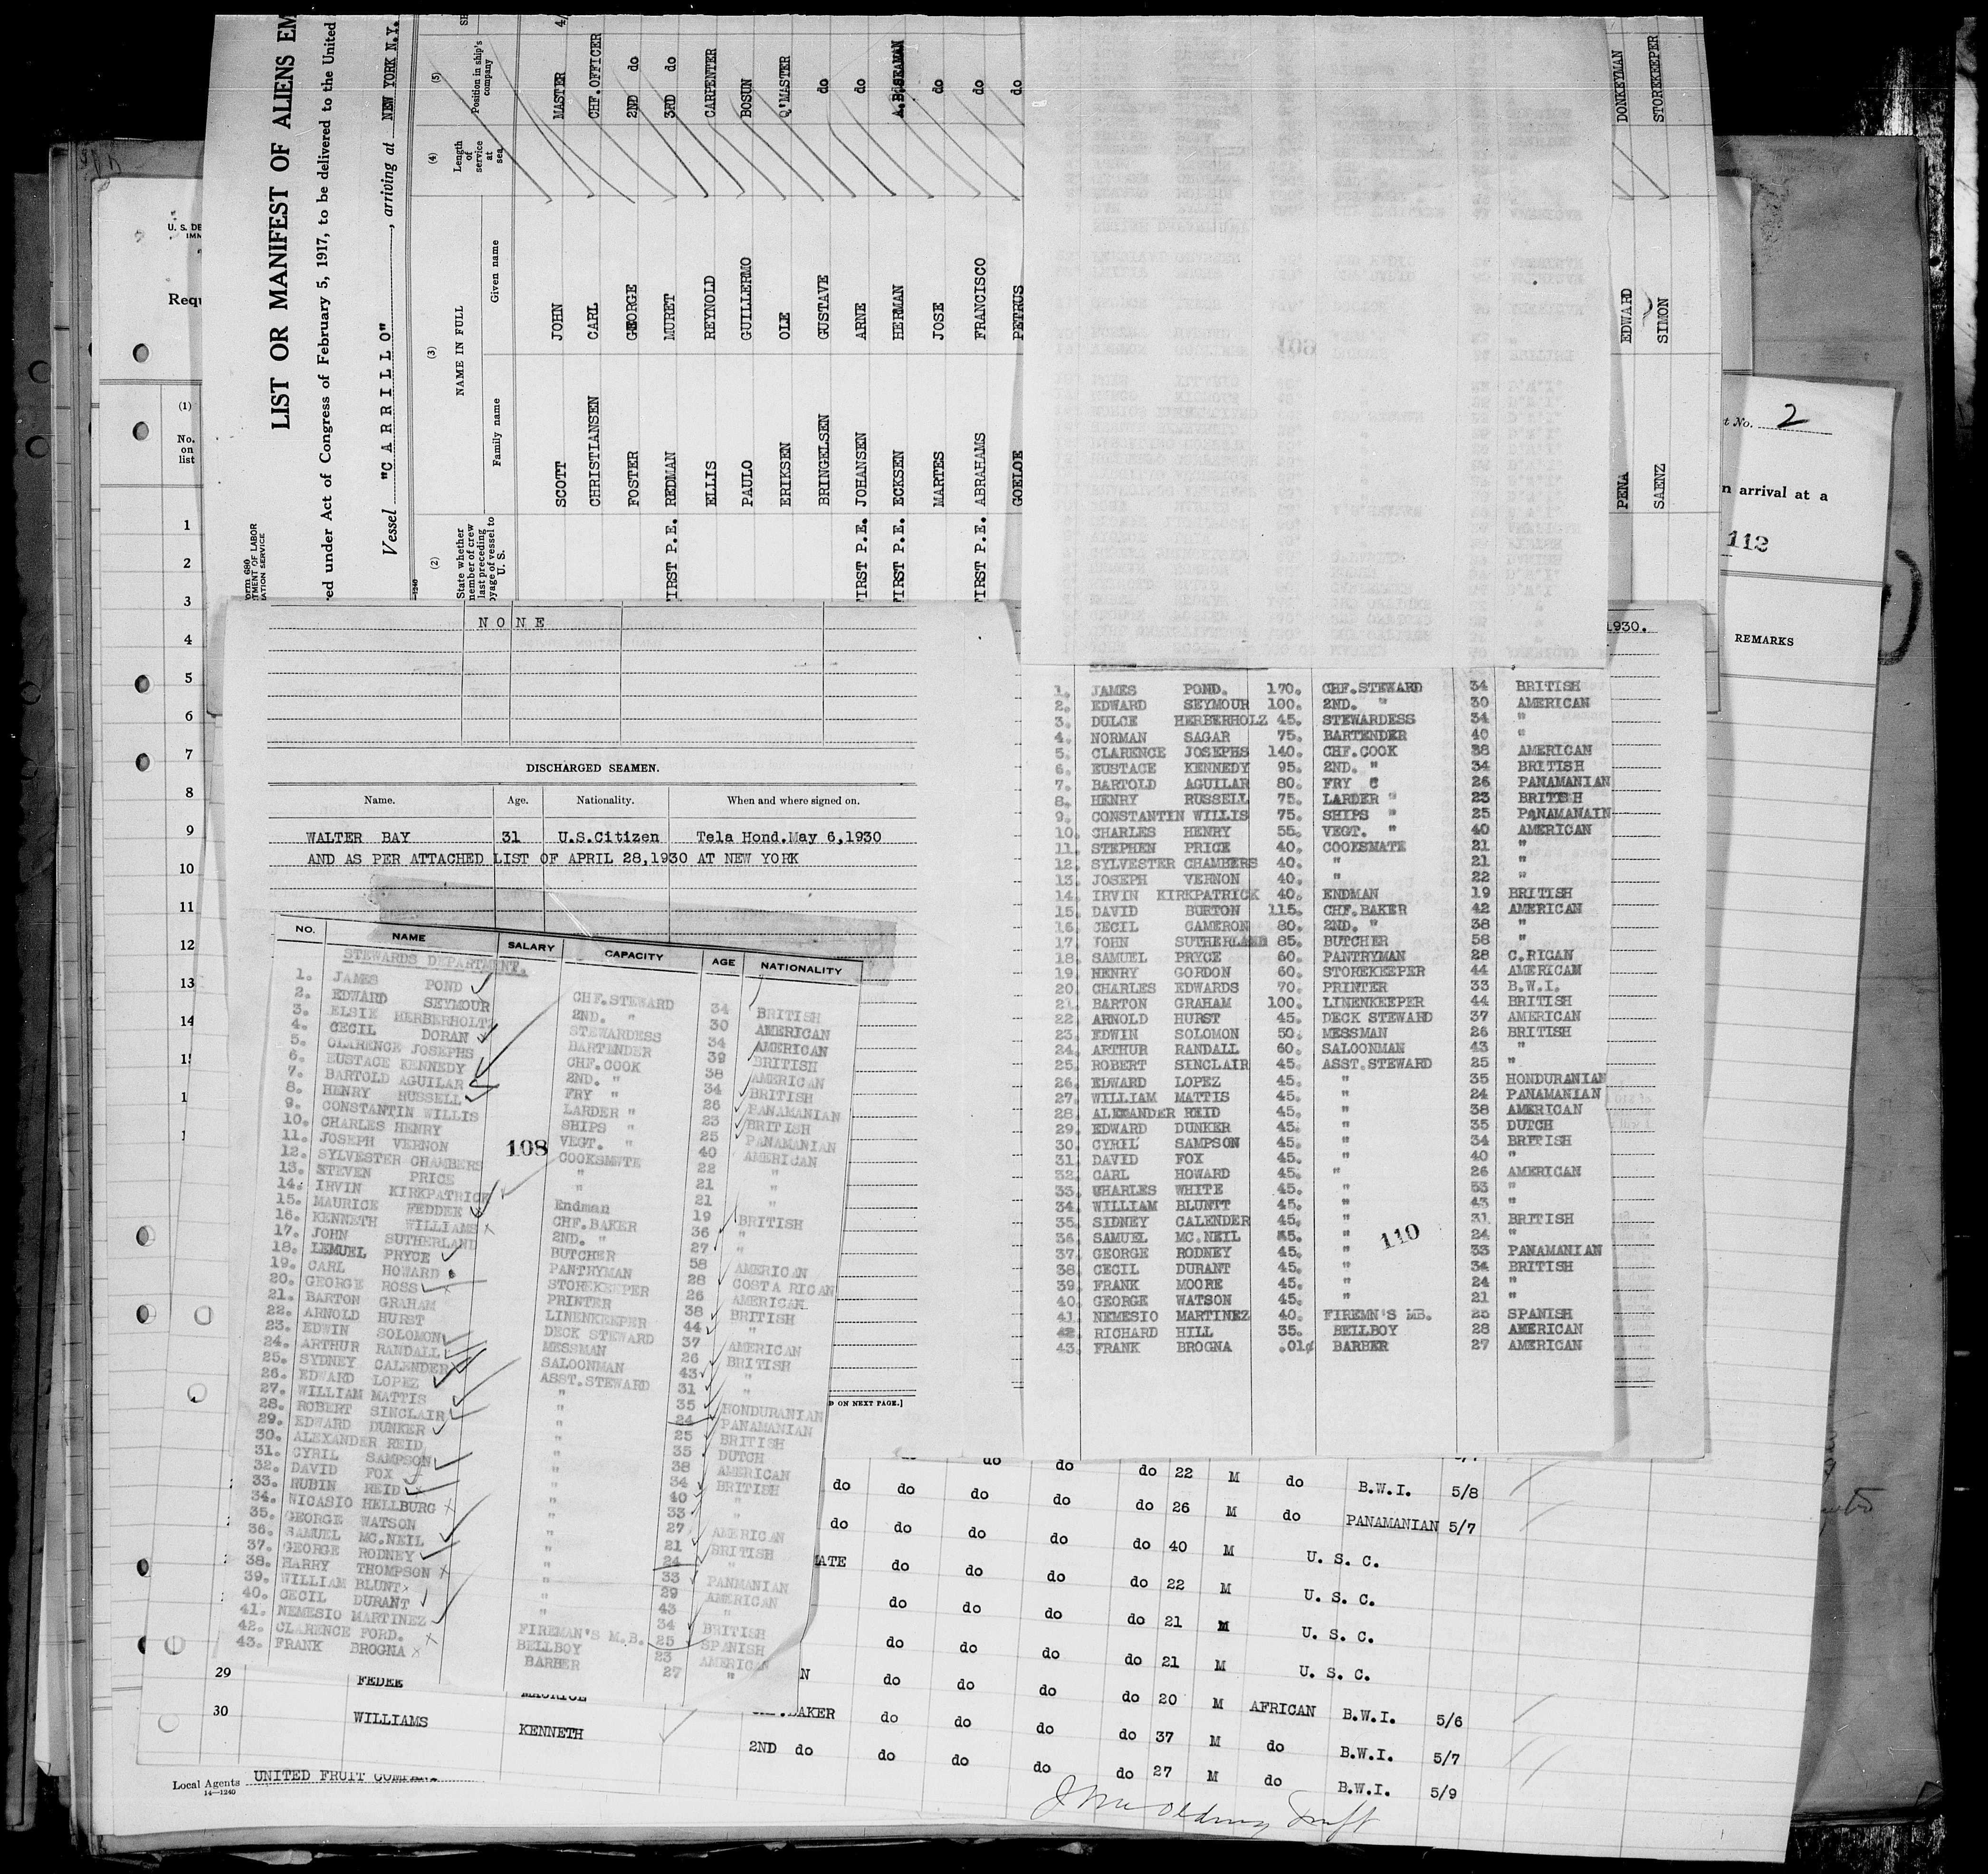 LIST OR MANIFEST OF ALIENS EM
red under Act of Congress of February 5, 1917, to be delivered to the United
Vessel "CARRILLO", arriving at NEW YORK N.Y.
(2) (3) (4) (5)
State whether member of crew last preceding voyage of vessel to U. S.
NAME IN FULL
Family name Given name
Length of service at sea
Position in ship's company
SCOTT JOHN MASTER
CHRISTIANSEN CARL CHF.OFFICER
FOSTER GEORGE 2ND do
FIRST P.E. REDMAN MURET 3RD do
ELLIS REYNOLD CARPENTER
PAULO GUILLERMO BOSUN
ERIKSEN OLE Q'MASTER
BRINGELSEN GUSTAVE do
FIRST P.E. JOHANSEN ARNE do
FIRST P.E. ECKSEN HERMAN A.B.SEAMAN
MARTES JOSE do
FIRST P.E. ABRAHAMS FRANCISCO do
GOELOE PETRUS do
PENA EDWARD DONKEYMAN
SAENZ SIMON STOREKEEPER
U. S. DE
Requ
(1)
No. on list
1
2
3
4
5
6
7
8
9
10
11
12
13
14
t No. 2
n arrival at a
112
REMARKS
1930.
NONE
DISCHARGED SEAMEN.
Name. Age. Nationality. When and where signed on.
WALTER BAY 31 U.S.Citizen Tela Hond.May 6,1930
AND AS PER ATTACHED LIST OF APRIL 28,1930 AT NEW YORK
NO. NAME SALARY CAPACITY AGE NATIONALITY
STEWARDS DEPARTMENT.
1. JAMES POND CHF.STEWARD 34 BRITISH
2. EDWARD SEYMOUR 2ND. " 30 AMERICAN
3. ELSIE HERBERHOLTZ STEWARDESS 34 AMERICAN
4. CECIL DORAN BARTENDER 39 BRITISH
5. CLARENCE JOSEPHS CHF.COOK 38 AMERICAN
6. EUSTACE KENNEDY 2ND. " 34 BRITISH
7. BARTOLD AGUILAR FRY " 26 PANAMANIAN
8. HENRY RUSSELL LARDER " 23 BRITISH
9. CONSTANTIN WILLIS SHIPS " 25 PANAMANIAN
10. CHARLES HENRY VEGT. " 40 AMERICAN
11. JOSEPH VERNON COOKSMWTE 22 "
12. SYLVESTER CHAMBERS " 21 "
13. STEVEN PRICE " 21 "
14. IRVIN KIRKPATRICK Endman 19 BRITISH
15. MAURICE FEDDEE CHF.BAKER 36 "
16. KENNETH WILLIAMS 2ND. " 27 "
17. JOHN SUTHERLAND BUTCHER 58 AMERICAN
18. LEMUEL PRYCE PANTRYMAN 28 COSTA RICAN
19. CARL HOWARD STOREKEEPER 26 AMERICAN
20. GEORGE ROSS PRINTER 38 BRITISH
21. BARTON GRAHAM LINENKEEPER 44 "
22. ARNOLD HURST DECK STEWARD 37 AMERICAN
23. EDWIN SOLOMON MESSMAN 26 BRITISH
24. ARTHUR RANDALL SALOONMAN 43 "
25. SYDNEY CALENDER ASST.STEWARD 31 "
26. EDWARD LOPEZ " 35 HONDURANIAN
27. WILLIAM MATTIS " 24 PANAMANIAN
28. ROBERT SINCLAIR " 25 BRITISH
29. EDWARD DUNKER " 35 DUTCH
30. ALEXANDER REID " 38 AMERICAN
31. CYRIL SAMPSON " 34 BRITISH
32. DAVID FOX " 40 "
33. RUBIN REID " 33 "
34. NICASIO HELLBURG " 27 AMERICAN
35. GEORGE WATSON " 21 BRITISH
36. SAMUEL MC.NEIL " 24 "
37. GEORGE RODNEY " 33 PANMANIAN
38. HARRY THOMPSON " 29 AMERICAN
39. WILLIAM BLUNT " 43 "
40. CECIL DURANT " 34 BRITISH
41. NEMESIO MARTINEZ FIREMAN'S M.B. 25 SPANISH
42. CLARENCE FORD. BELLBOY 23 AMERICAN
43. FRANK BROGNA BARBER 27 "
108
1. JAMES POND. 170. CHF.STEWARD 34 BRITISH
2. EDWARD SEYMOUR 100. 2ND. " 30 AMERICAN
3. DULCE HERBERHOLZ 45. STEWARDESS 34 "
4. NORMAN SAGAR 75. BARTENDER 40 "
5. CLARENCE JOSEPHS 140. CHF.COOK 38 AMERICAN
6. EUSTACE KENNEDY 95. 2ND. " 34 BRITISH
7. BARTOLD AGUILAR 80. FRY C 26 PANAMANIAN
8. HENRY RUSSELL 75. LARDER " 23 BRITISH
9. CONSTANTIN WILLIS 75. SHIPS " 25 PANAMANAIN
10. CHARLES HENRY 55. VEGT. " 40 AMERICAN
11. STEPHEN PRICE 40. COOKSMATE 21 "
12. SYLVESTER CHAMBERS 40. " 21 "
13. JOSEPH VERNON 40. " 22 "
14. IRVIN KIRKPATRICK 40. ENDMAN 19 BRITISH
15. DAVID BURTON 115. CHF.BAKER 42 AMERICAN
16. CECIL CAMERON 80. 2ND. " 38 "
17. JOHN SUTHERLAND 85. BUTCHER 58 "
18. SAMUEL PRYCE 60. PANTRYMAN 28 C.RICAN
19. HENRY GORDON 60. STOREKEEPER 44 AMERICAM
20. CHARLES EDWARDS 70. PRINTER 33 B.W.I.
21. BARTON GRAHAM 100. LINENKEEPER 44 BRITISH
22. ARNOLD HURST 45. DECK STEWARD 37 AMERICAN
23. EDWIN SOLOMON 50. MESSMAN 26 BRITISH
24. ARTHUR RANDALL 60. SALOONMAN 43 "
25. ROBERT SINCLAIR 45. ASST.STEWARD 25 "
26. EDWARD LOPEZ 45. " 35 HONDURANIAN
27. WILLIAM MATTIS 45. " 24 PANAMANIAN
28. ALEXANDER REID 45. " 38 AMERICAN
29. EDWARD DUNKER 45. " 35 DUTCH
30. CYRIL SAMPSON 45. " 34 BRITISH
31. DAVID FOX 45. " 40 "
32. CARL HOWARD 45. " 26 AMERICAN
33. CHARLES WHITE 45. " 53 "
34. WILLIAM BLUNTT 45. " 43 "
35. SIDNEY CALENDER 45. " 31 BRITISH
36. SAMUEL MC.NEIL 45. " 24 "
37. GEORGE RODNEY 45. " 33 PANAMANIAN
38. CECIL DURANT 45. " 34 BRITISH
39. FRANK MOORE 45. " 24 "
40. GEORGE WATSON 45. " 21 "
41. NEMESIO MARTINEZ 40. FIREMN'S MB. 25 SPANISH
42. RICHARD HILL 35. BELLBOY 28 AMERICAN
43. FRANK BROGNA .01¢ BARBER 27 AMERICAN
110
D ON NEXT PAGE.]
do do do do do 22 M do B.W.I. 5/8
do do do do do 26 M do PANAMANIAN 5/7
do do do do 40 M U. S. C.
MATE do do do do 22 M U. S. C.
do do do do 21 M U. S. C.
do do do do 21 M U. S. C.
N do do do do 20 M AFRICAN B.W.I. 5/6
29 FEDEE MAURICE BAKER do do do do 37 M do B.W.I. 5/7
30 WILLIAMS KENNETH 2ND do do do do do 27 M do B.W.I. 5/9
Local Agents UNITED FRUIT COMPANY
14—1240